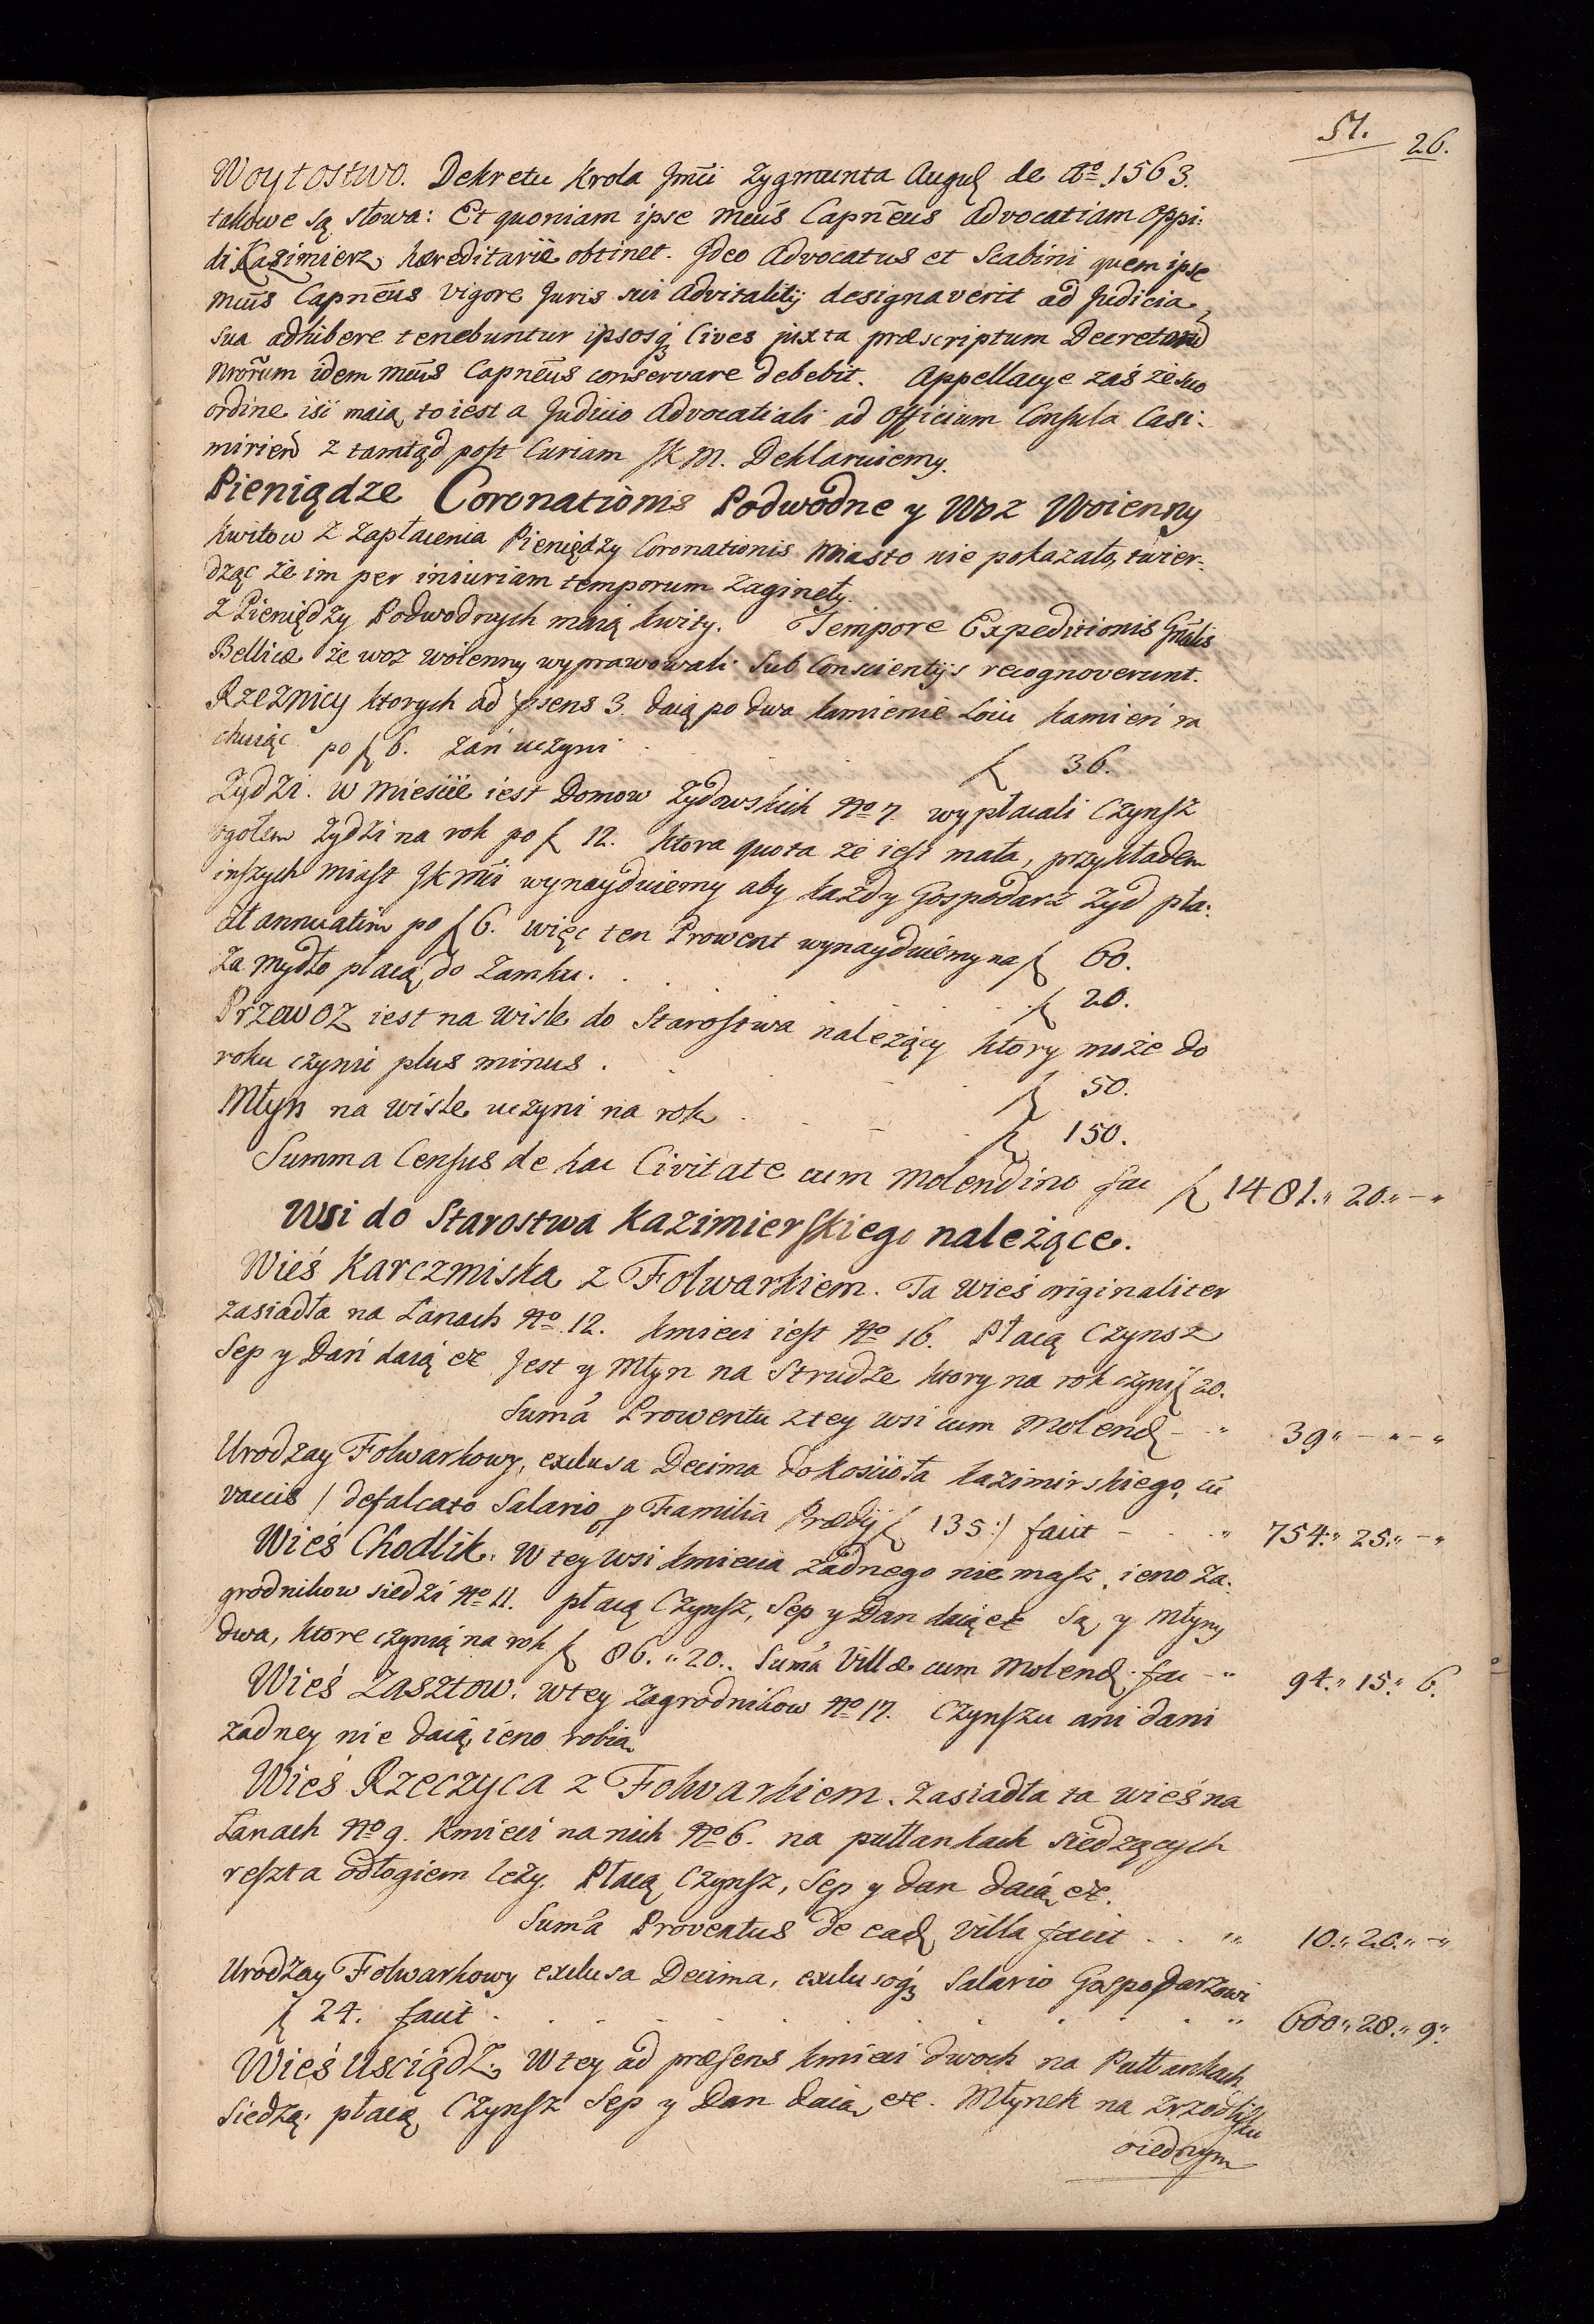 51. 26.
Woytostwo. Dekretu Krola Jmći Zygmunta Aug. de Ao. 1563.
takowe są słowa: Et quoniam ipse Mcus Capneus Advocatiam Oppi:
di Kazimierz, hæreditarie obtinet. Ideo Advocatus et Scabini quem ipse
Mcus Capneus vigore Juris sui Advitalitij designaverit ad Judicia
sua adhibere tenebuntur ipsosq; Cives juxta præscriptum Decretorum
nrorum idem Mcus Capneus conservare debebit. Appellacye zaś ze suo
ordine isć maią, to iest a Judicio Advocatiali ad Officium Consula Casi:
mirien z tamtąd post Curiam JKM. Deklaruiemy.
Pieniądze Coronationis Podwodne y Woz Woienny
Kwitow z zapłacenia Pieniędzy Coronationis Miasto nie pokazało, twier:
dząc że im per iniuriam temporum zagineły.
z Pieniędzy Podwodnych maią kwity. Tempore Expeditionis Gnalis
Bellicæ że woz woienny wyprawowali sub Conscientijs recognoverunt.
Rzeznicy ktorych ad psens 3. daią po dwa kamienie Łoiu kamień ra
chuiąc po f 6. zań uczyni f 36.
Zydzi. w Miescie iest Domow Zydowskich No 7. wypłacali Czynsz
ogołem Zydzi na rok po f 12. ktora quota że iest mała, przykładem
inszych Miast JKMći wynayduiemy aby każdy Gospodarz Zyd pła:
cił annuatim po f 6. więc ten Prowent wynayduiemy na f 60.
Za mydło płacą do Zamku. . . f 20.
Przewoz iest na Wisle do Starostwa należący ktory może do
roku czynić plus minus . . . f 50.
Młyn na Wisle uczyni na rok . . f 150.
Summa Census de hac Civitate cum Molendino fac f 1481." 20." - "
Wsi do Starostwa Kazimierskiego należące.
Wieś Karczmiska z Folwarkiem. Ta wieś originaliter
zasiadła na Łanach No 12. Kmieci iest No 16. Płacą Czynsz
Sep y Dań daią etc Jest y Młyn na Strudze ktory na rok czyni f 20.
Suma Prowentu z tey wsi cum Molend - " 39" - " - "
Urodzay Folwarkowy, exclusa Decima do Kościoła Kazimirskiego, cu
vaccis /: defalcato Salario p Familia Prædij f 135 :/ facit - . . " 754." 25." - "
Wieś Chodlik. W tey wsi kmiecia żadnego nie masz, ieno Za:
grodnikow siedzi No 11. płacą Czynsz, Sep y Dan daią etc Są y Młyny
dwa, ktore czynią na rok f 86." 20.. Suma Villæ cum Molend. fac - " 94." 15." 6.
Wieś Zasztow. w tey Zagrodnikow No 17. Czynszu ani dani
żadney nie daią, ieno robią
Wieś Rzeczyca z Folwarkiem. Zasiadła ta wieś na
Łanach No 9. Kmieci na nich No 6. na pułłankach siedzących
reszta odłogiem leży. Płacą Czynsz, Sep y dan daią etc.
Suma Proventus de ead Villa facit . . " 10." 20." - "
Urodzay Folwarkowy exclusa Decima, exclusoq; Salario Gospodarzowi
f 24. facit . . . . . . " 600." 28." 9."
Wieś Usciądz. W tey ad præsens kmieci dwoch na Pułłankach
siedzą, płacą Czynsz Sep y Dan daią etc. Młynek na Zrzodlisku
oiednym